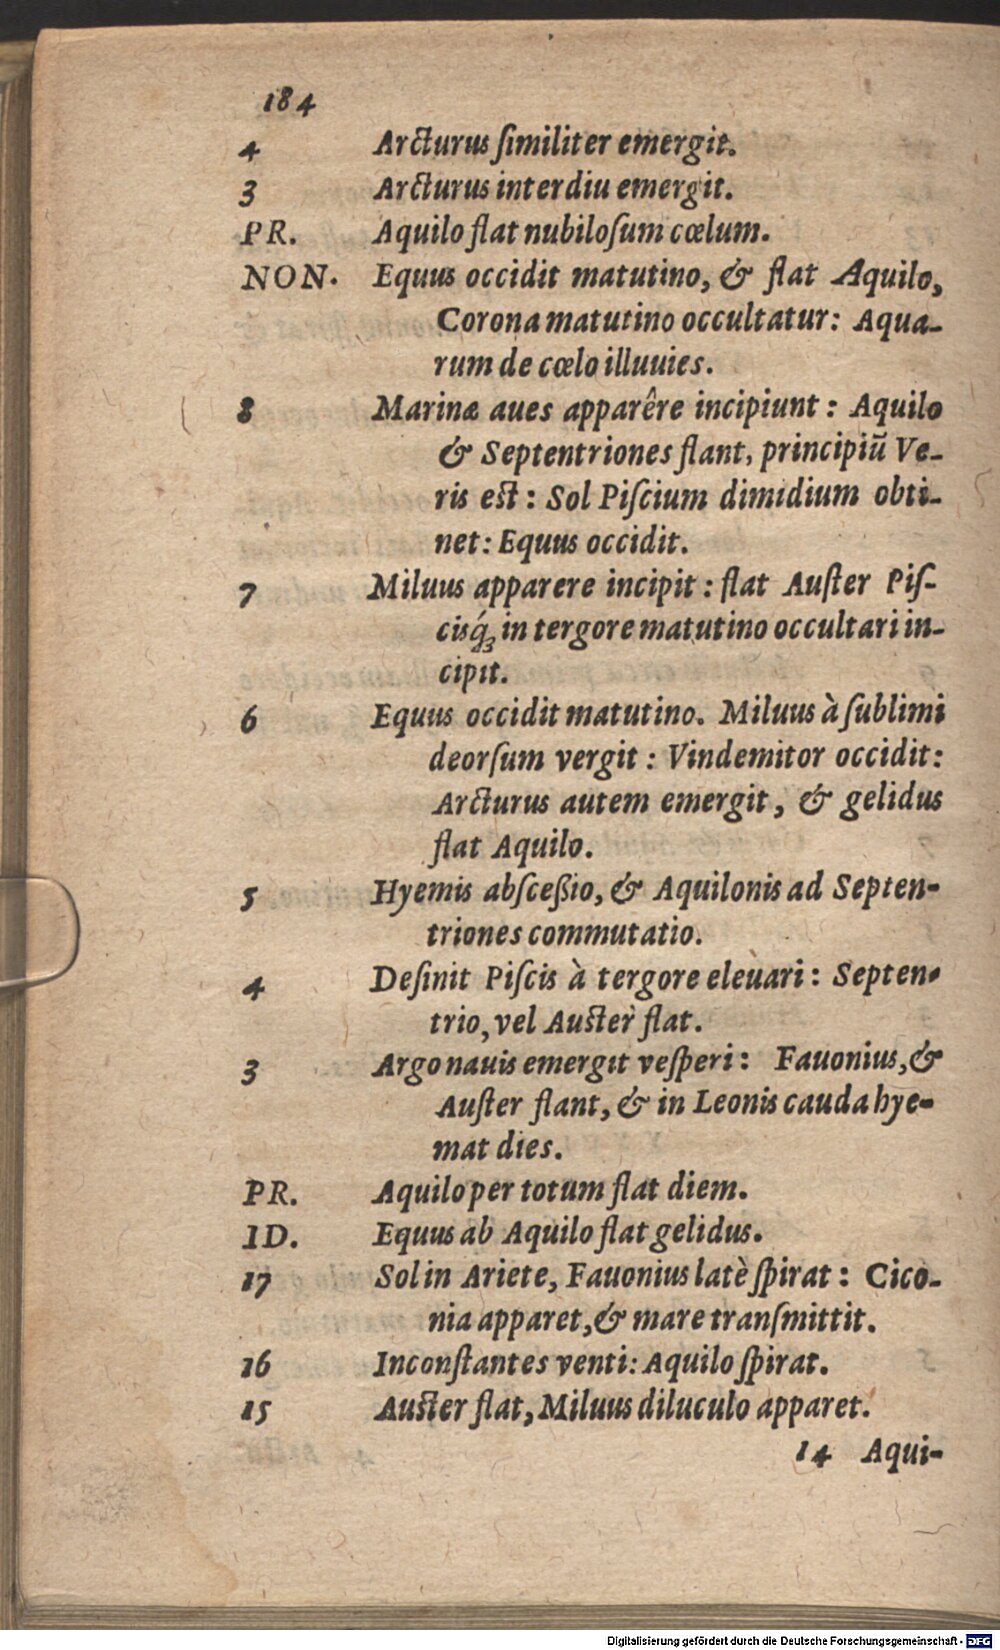 184
4 Arcturus ſimiliter emergit.
3 Arcturus interdiu emergit.
PR. Aquilo flat nubiloſum cœlum.
NON. Equus occidit matutino, & flat Aquilo,
Corona matutino occultatur: Aqua-
rum de cœlo illuuies.
8 Marinæ aues apparêre incipiunt: Aquilo
& Septentriones flant, principiũ Ve-
ris est: Sol Piſcium dimidium obti-
net: Equus occidit.
7 Miluus apparere incipit: flat Auſter Piſ-
cisq́ꝫ in tergore matutino occultari in-
cipit.
6 Equus occidit matutino. Miluus à ſublimi
deorſum vergit: Vindemitor occidit:
Arcturus autem emergit, & gelidus
flat Aquilo.
5 Hyemis abſceßio, & Aquilonis ad Septen-
triones commutatio.
4 Deſinit Piſcis à tergore eleuari: Septen-
trio, vel Auster flat.
3 Argo nauis emergit veſperi: Fauonius, &
Auſter flant, & in Leonis cauda hye-
mat dies.
PR. Aquilo per totum flat diem.
ID. Equus ab Aquilo flat gelidus.
17 Sol in Ariete, Fauonius latè ſpirat: Cico-
nia apparet, & mare tranſmittit.
16 Inconſtantes venti: Aquilo ſpirat.
15 Auster flat, Miluus diluculo apparet.
14 Aqui-
Digitalisierung gefördert durch die Deutsche Forschungsgemeinschaft - DFG